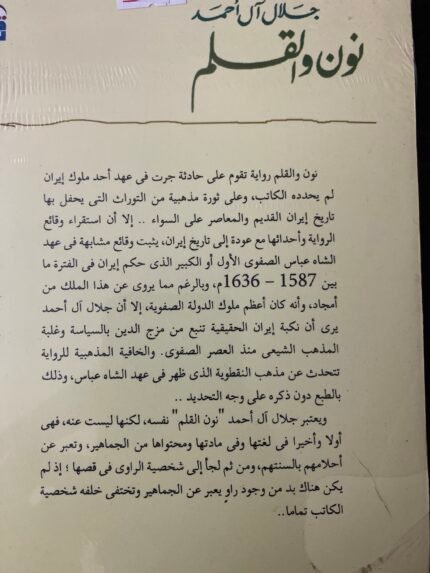 جلال آل أحمد
نون والقلم
نون والقلم رواية تقوم على حادثة جرت فى عهد أحد ملوك إيران
لم يحدده الكاتب، وعلى ثورة مذهبية من الثورات التى يحفل بها
تاريخ إيران القديم والمعاصر على السواء .. إلا أن استقراء وقائع
الرواية وأحداثها مع عودة إلى تاريخ إيران، يثبت وقائع مشابهة فى عهد
الشاه عباس الصفوى الأول أو الكبير الذى حكم إيران فى الفترة ما
بين 1587 – 1636م، وبالرغم مما يروى عن هذا الملك من
أمجاد، وأنه كان أعظم ملوك الدولة الصفوية، إلا أن جلال آل أحمد
يرى أن نكبة إيران الحقيقية تنبع من مزج الدين بالسياسة وغلبة
المذهب الشيعى منذ العصر الصفوى. والخافية المذهبية للرواية
تتحدث عن مذهب النقطوية الذى ظهر فى عهد الشاه عباس، وذلك
بالطبع دون ذكره على وجه التحديد ..
ويعتبر جلال آل أحمد "نون القلم" نفسه، لكنها ليست عنه، فهى
أولا وأخيرا فى لغتها وفى مادتها ومحتواها من الجماهير، وتعبر عن
أحلامهم بالسنتهم، ومن ثم لجأ إلى شخصية الراوى فى قصها ؛ إذ لم
يكن هناك بد من وجود راوٍ يعبر عن الجماهير وتختفى خلفه شخصية
الكاتب تماما..